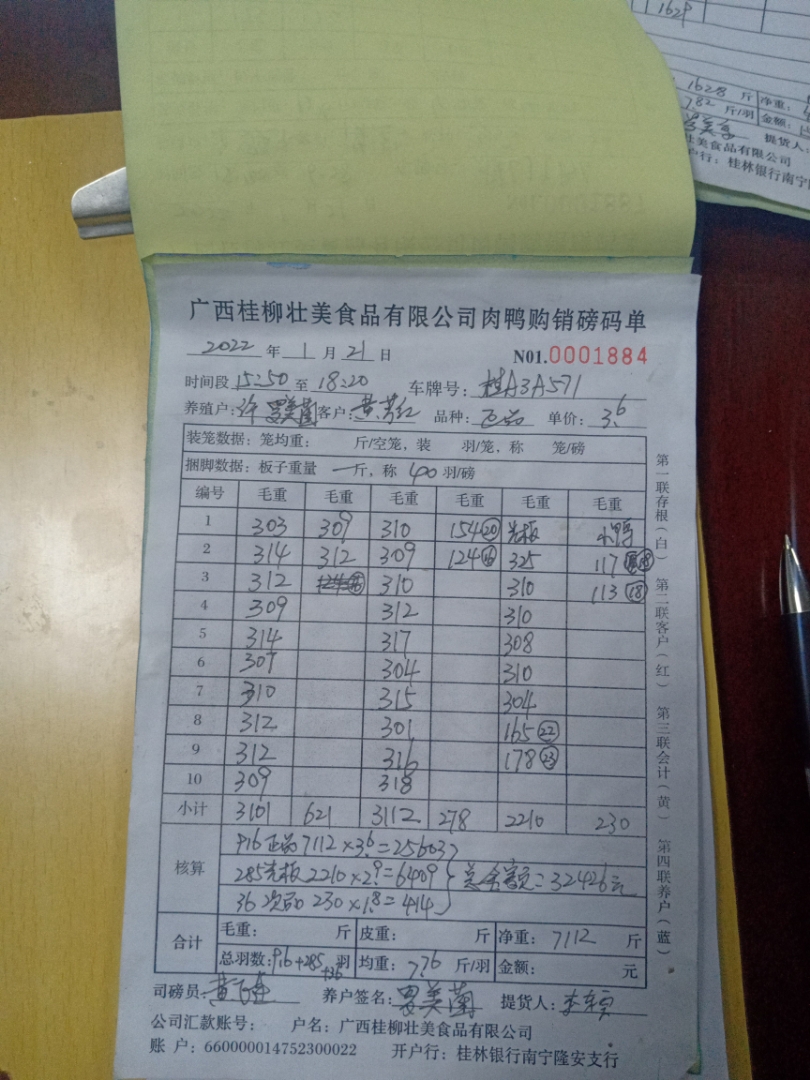 162P
1628 斤 净重:
782 斤/羽 金额:
提货人:
壮美食品有限公司
户行: 桂林银行南宁隆
广西桂柳壮美食品有限公司肉鸭购销磅码单
2022 年 1 月 21 日 N01.0001884
时间段 15:50 至 18:20 车牌号: 桂A3A571
养殖户: 许 罗美兰 客户: 黄芳红 品种: 正品 单价: 3.6
装笼数据: 笼均重: 斤/空笼, 装 羽/笼, 称 笼/磅
捆脚数据: 板子重量 一斤, 称 400 羽/磅
编号 毛重 毛重 毛重 毛重 毛重 毛重
1 303 309 310 154⑳ 光板 小鸭
2 314 312 309 124⑯ 325 117⑱
3 312 310 310 113⑱
4 309 312 310
5 314 317 308
6 307 304 310
7 310 315 304
8 312 301 165㉒
9 312 316 178㉓
10 309 318
小计 3101 621 3112 278 2210 230
核算
916正品7112×3.6=25603
285光板2210×2.9=6409 总金额=32426元
36次品230×1.8=414
合计 毛重: 斤 皮重: 斤 净重: 7112 斤
总羽数: 916+285+36 羽 均重: 7.76 斤/羽 金额: 元
司磅员: 养户签名: 罗美兰 提货人:
公司汇款账号: 户名: 广西桂柳壮美食品有限公司
账 户: 660000014752300022 开户行: 桂林银行南宁隆安支行
第一联存根(白) 第二联客户(红) 第三联会计(黄) 第四联养户(蓝)